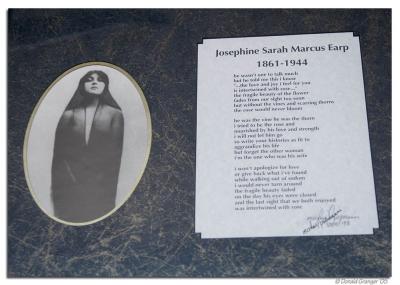 Josephine Sarah Marcus Earp
1861-1944
he wasn't one to talk much
but he told me this i know
"...the love and joy i feel for you
is intertwined with rose...
the fragile beauty of the flower
fades from our sight too soon
but without the vines and scarring thorns
the rose would never bloom
he was the vine he was the thorn
i tried to be the rose and
nourished by his love and strength
i will not let him go
so write your histories as fit to
aggrandize his life
but forget the other woman
i'm the one who was his wife
i won't apologize for love
or give back what i've found
while walking out of sodom
i would never turn around
the fragile beauty faded
on the day his eyes were closed
and the last sight that we both enjoyed
was intertwined with rose
© Donald Granger 05